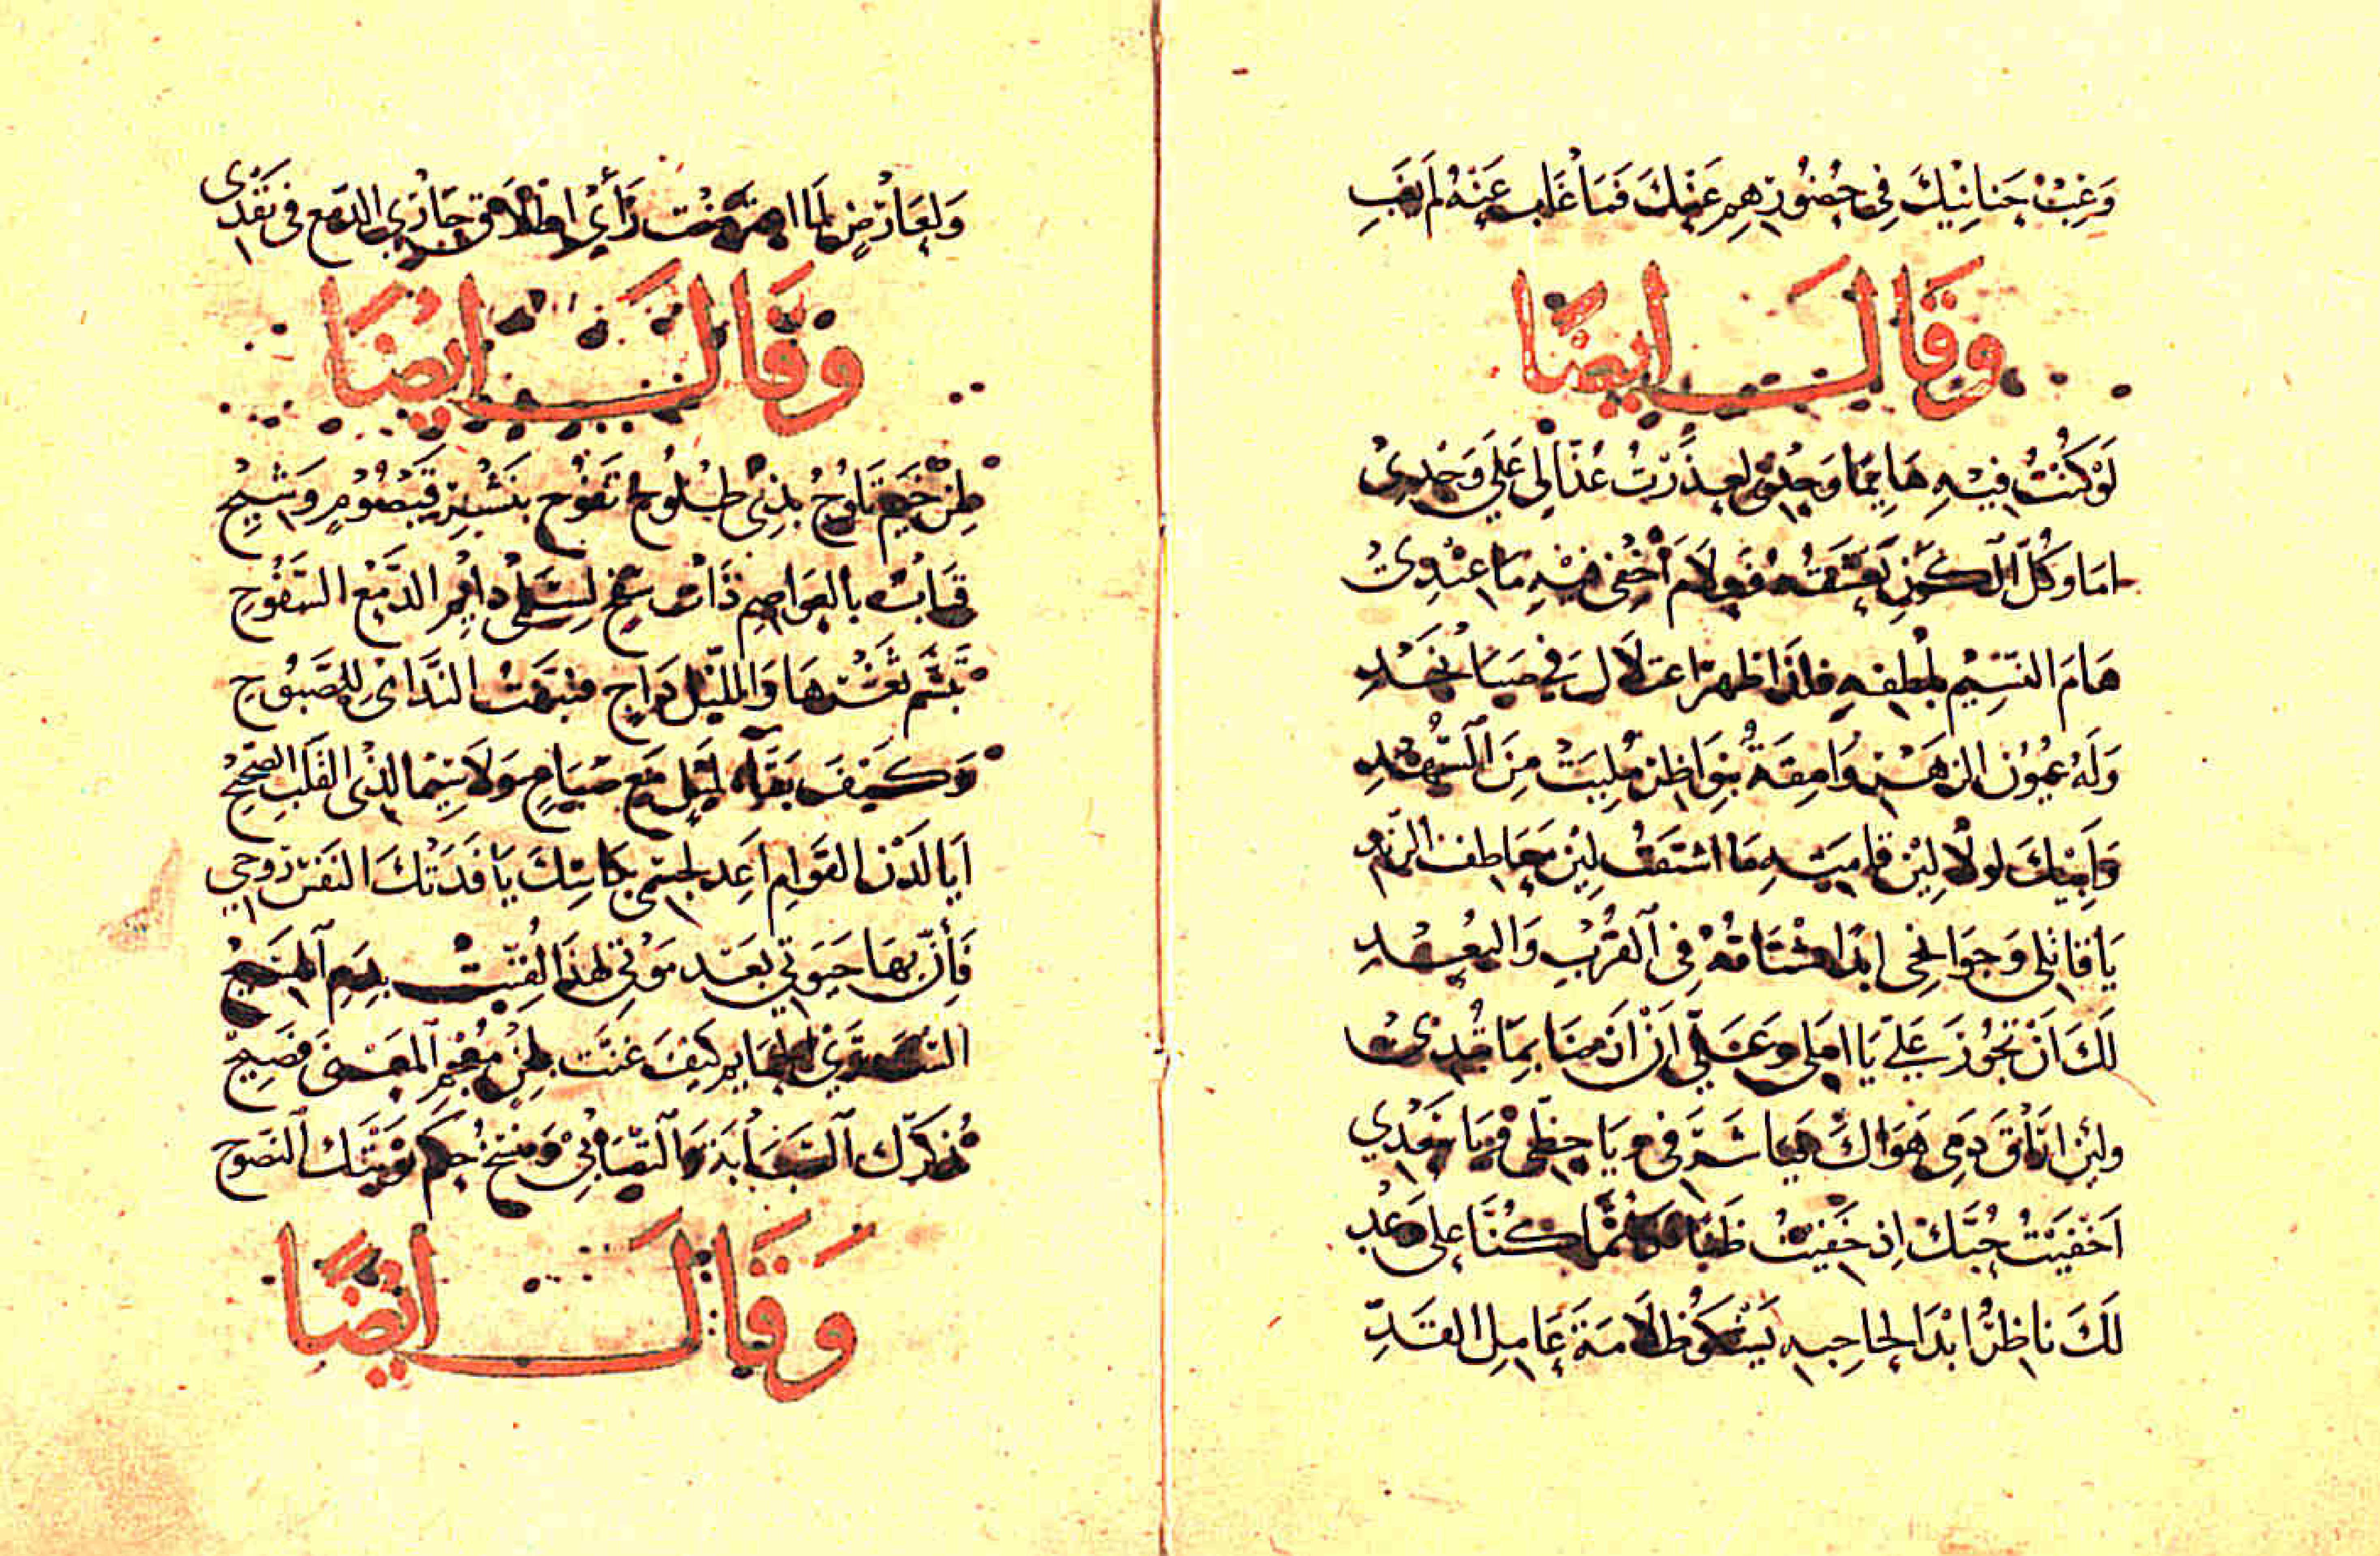 وَغِبْتُ حَنانَيْكَ فِي حُضُورِهِمِ عَنْكَ فَمَا غَاب عَنْهُ لَم يَغِبِ
وَقَالَ ايضًا
لَوْ كُنْتُ فيْهِ هَايِمًا وَحْدِي لعذَّرتُ عُذّالِى عَلي وَجْدِي
امَا وَكُلّ الكَونِ يَعْشَقُهُ فَولَامَ أُخْفِى فيْهِ مَا عِنْدِي
هَامَ النّسِيْمُ بلُطفِهِ فلذَا ظهر اعتلَال في صَبَا نَجْدِ
وَلَهُ عُيُون الزهْرِ وَامِقَةُ بنوَاظِرٍ مُلِيَتْ مِنَ السُّهْدِ
وَأَبيْكَ لولَا لِيْن قامَتِهِ مَا اشتَقتُ لِيْنَ مَعَاطِف الرّندِ
يَا قَاتِلي وَجوَانِحِى ابَدًا مُشْتَاقةٌ فِي القُرْبِ وَالبُعْدِ
لَكَ اَنْ تَجُوْزَ عَليّ يَا امَلي وعَليّ اَنْ اَرْضَا بِمَا تُبدي
ولئِن ارَاقَ دَمِي هَوَاكَ فيَا شرَفى وَيَا حَظّي وَيَا سَعْدِي
اَخفَيْتُ حُبّكَ اِذ خَفيْتُ ضَنًا فكأنّما كُنّا عَلى وَعْدِ
لَكَ نَاظِرٌ ابْدَا لحاجِبِهِ يَشكوُ ظلَامَة عَامِل القَدِّ
وَلِعَارِضٍ لمّا رَأي اطلَاق جَارِي الدّمع فى
وَقَالَ ايضًا
لِمَنْ خِيَمٌ تَلوحُ بِذِي طُلُوحٍ تَفُوْح بنَشْرِ قَيصُوْمٍ وَشِيْحِ
قبَابٌ بالعَوَاصِمِ ذَات لسَلْمى دايم الدّمْع السّفُوحِ
تَبَسّمَ ثغْرُهَا وَالليْل دَاجٍ فنبّهَت النّدَامَى للصّبُوحِ
وَكَيْفَ بَقَاء ليْلٍ مَع صَبَاحٍ وَلَا سِيّمَا لذِي القَلْبِ الصّحِيْحِ
اَيَا لَدْن القَوَامِ اعِد لجسْمِي بكَاسِكَ يَا فَدَتْكَ النّفْسُ رُوحِي
فَأنّ بهَا حَيَوتي بَعد مَوْتي لهَذا لُقّبَتْ بدَمِ المَسِيْحِ
السْتَ تَرَي كيْفَ غنّت بلحْنٍ مُعْجِمِ المعْنَى فَصِيْحِ
تُذكّرك الصّبَابَةَ وَالتّصَابي وَتنْسخُ حُكمَ تَوْبَتك النّصُوحِ
وَقَالَ ايضًا